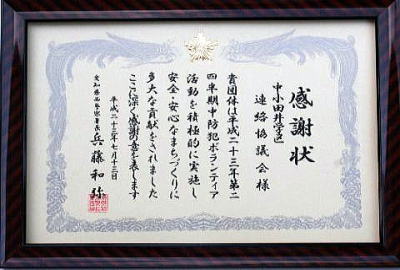 感謝状
中小田井学区
連絡協議会様
貴団体は平成二十三年第二
四半期中防犯ボランティア
活動を積極的に実施し
安全・安心なまちづくりに
多大な貢献をされました
ここに深く感謝の意を表します
平成二十三年七月十三日
愛知県西警察署長 兵藤和弥